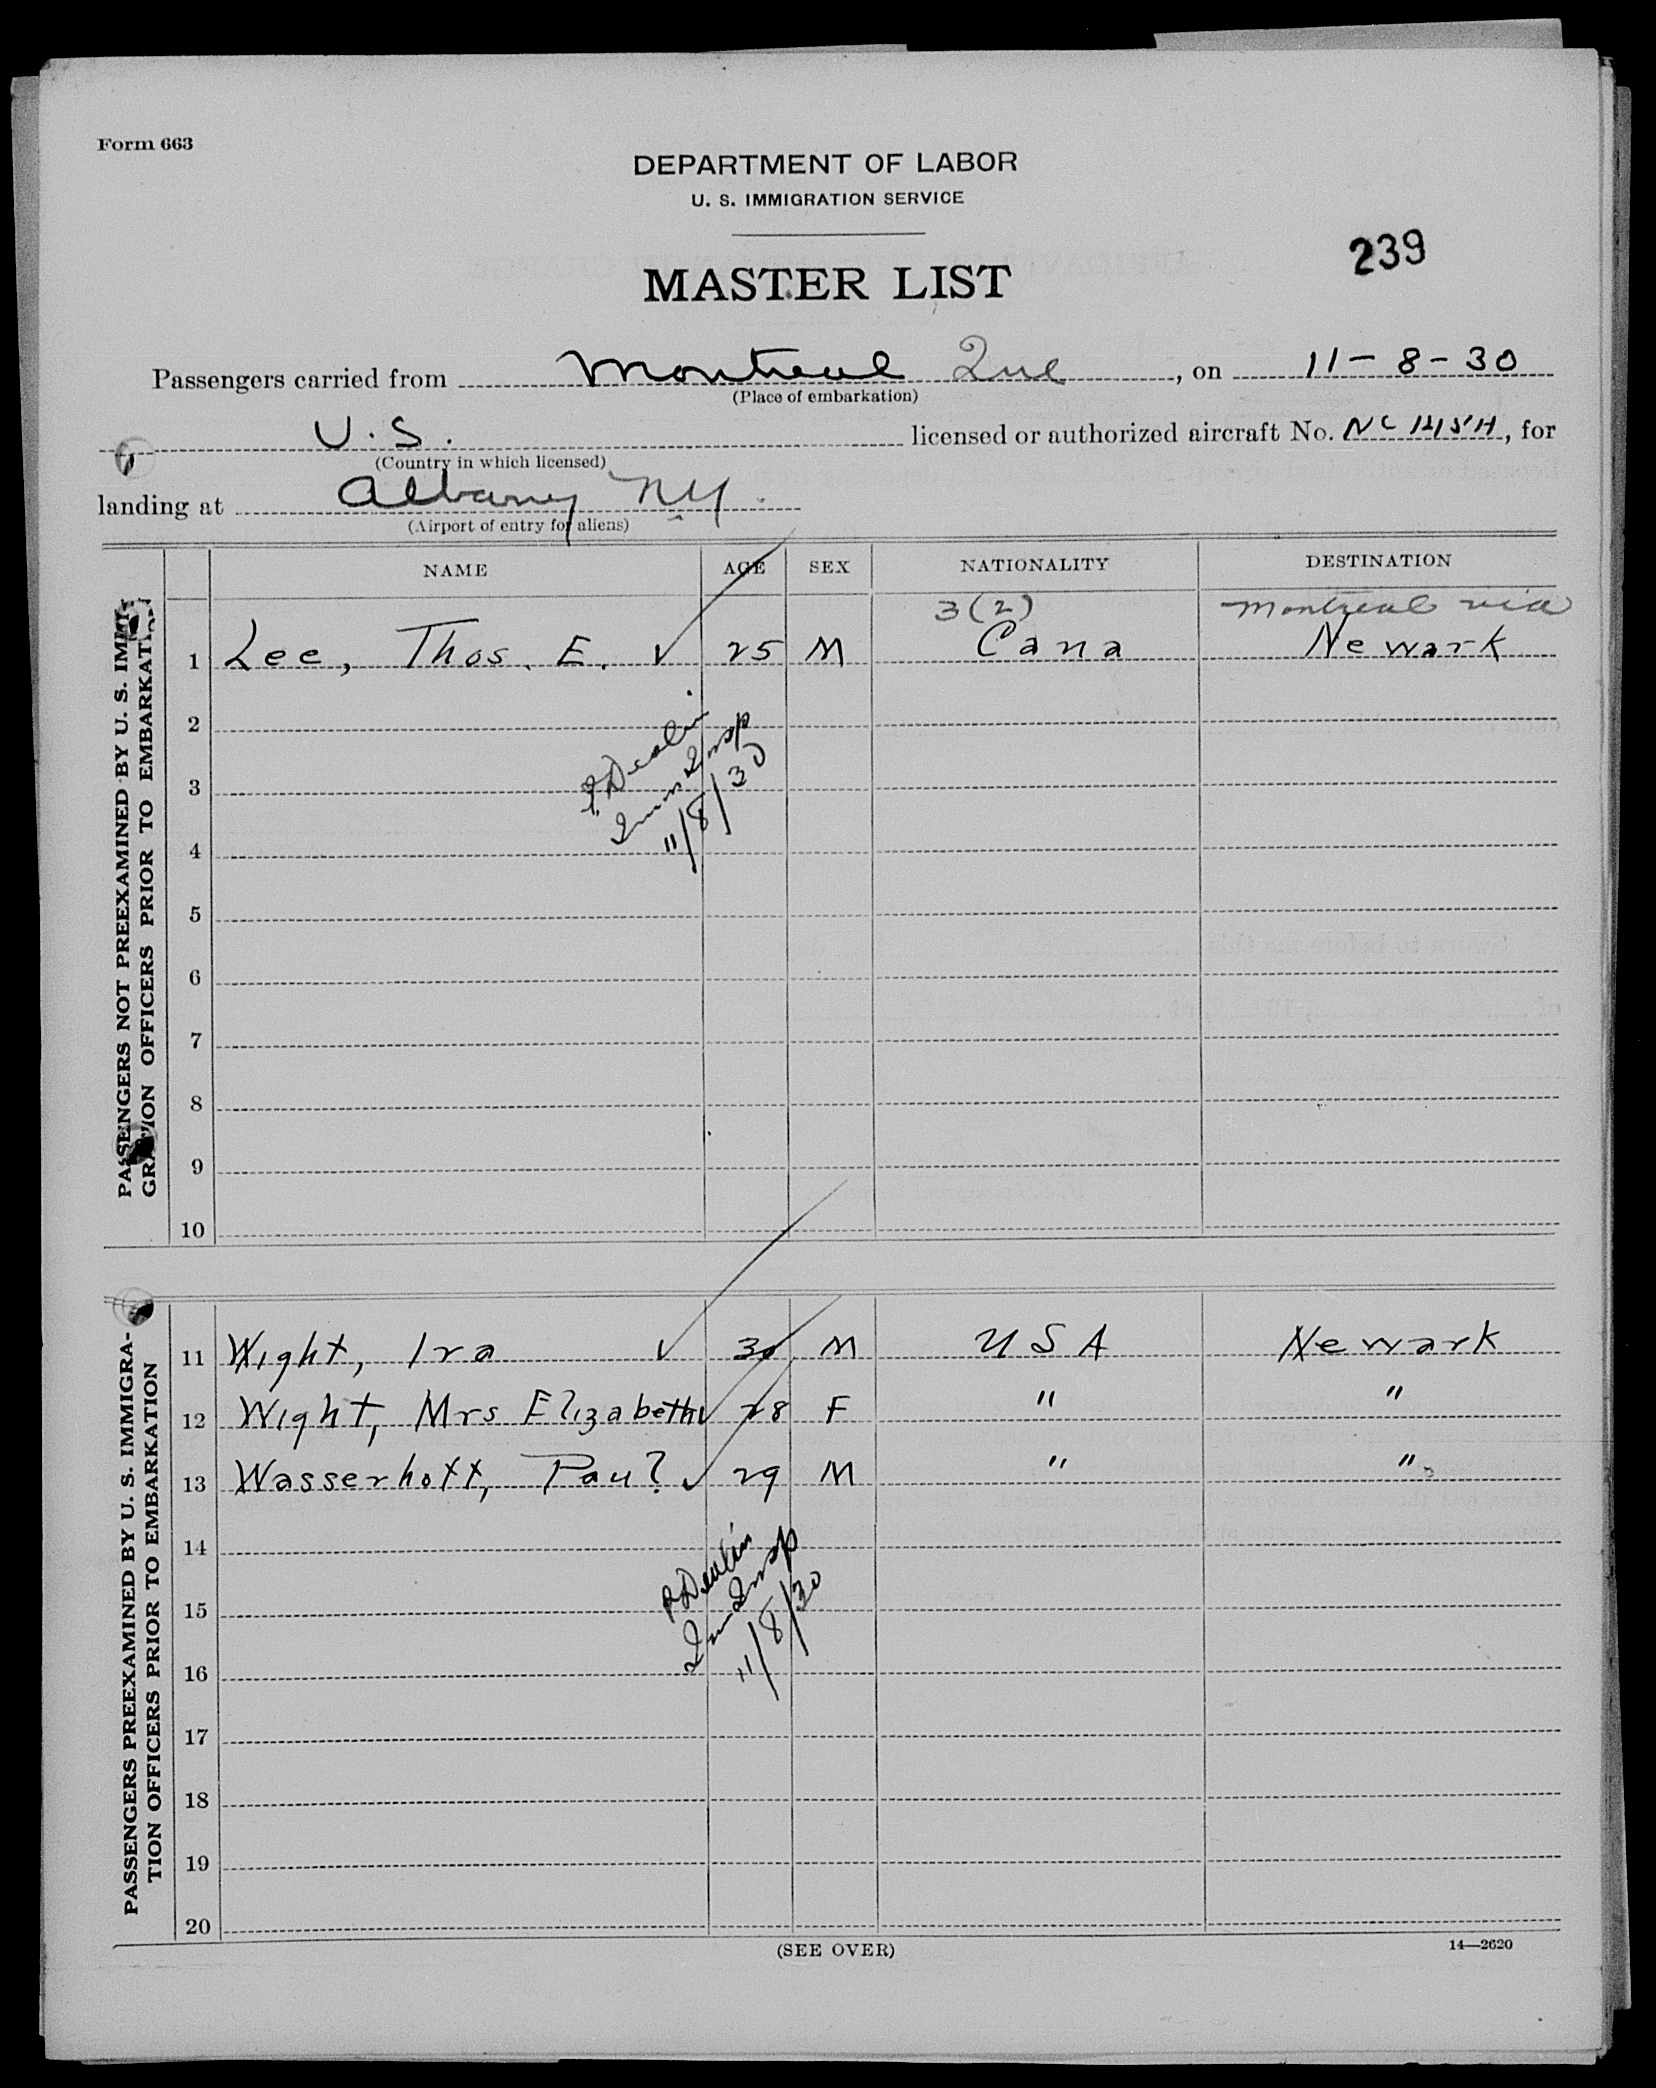 Form 663
DEPARTMENT OF LABOR
U. S. IMMIGRATION SERVICE
239
MASTER LIST
Passengers carried from Montreal Que, on 11-8-30
(Place of embarkation)
U.S. licensed or authorized aircraft No. NC, for
(Country in which licensed)
landing at Albany NY.
(Airport of entry for aliens)
NAME AGE SEX NATIONALITY DESTINATION
PASSENGERS NOT PREEXAMINED BY U. S. IMMI-
GRATION OFFICERS PRIOR TO EMBARKATION
3(2) Montreal via
1 Lee, Thos. E. ✓ 25 M Cana Newark
2
3
4
Devlin
Imm Insp
11/8/30
5
6
7
8
9
10
PASSENGERS PREEXAMINED BY U. S. IMMIGRA-
TION OFFICERS PRIOR TO EMBARKATION
11 Wight, Ira ✓ 30 M USA Newark
12 Wight, Mrs Elizabeth ✓ 28 F " "
13 Wasserhott, Paul ✓ 29 M " "
14
15
16
Devlin
Imm Insp
11/8/30
17
18
19
20
(SEE OVER)
14—2620